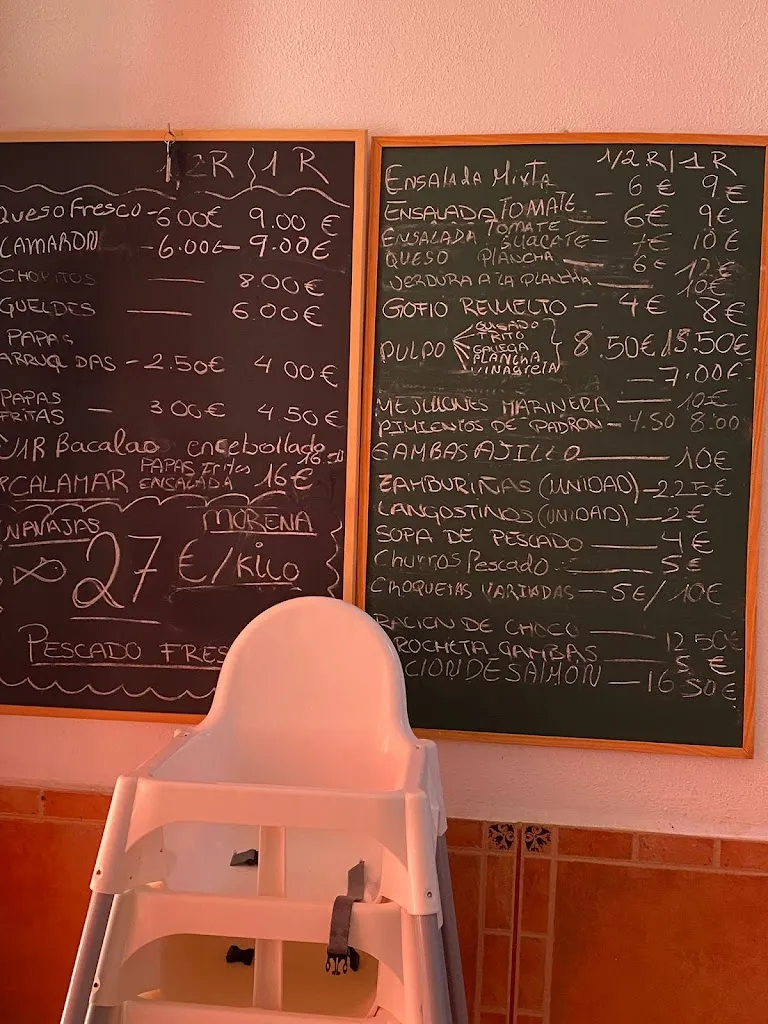 1/2R 1 R
Queso Fresco - 6 00€ 9.00 €
CAMARON - 6.00€ - 9.00€
CHOPITOS — 8.00€
GUELDES — 6.00€
PAPAS
ARRUGADAS - 2.50€ 4 00€
PAPAS
FRITAS — 3 00€ 4.50€
1R Bacalao encebollado 16.50
CALAMAR PAPAS Fritas ENSALADA 16€
NAVAJAS MORENA
27 €/Kilo
PESCADO FRES
1/2 R | 1 R
Ensalada Mixta - 6 € 9€
ENSALADA TOMATE — 6€ 9€
ENSALADA TOMATE AGUACATE - 7€ 10€
QUESO PLANCHA — 6€ 12€
VERDURA A LA PLANCHA — 10€
GOFIO REVUELTO — 4€ 8€
PULPO GUISADO FRITO GALLEGA PLANCHA VINAGRETA 8.50€ 15.50€
— 7.00€
MEJILLONES MARINERA — 10€
PIMIENTOS DE PADRON - 4.50 8.00
GAMBAS AJILLO — 10€
ZAMBURIÑAS (UNIDAD) - 2.25€
LANGOSTINOS (UNIDAD) — 2€
SOPA DE PESCADO — 4€
Churros Pescado — 5€
CROQUETAS VARIADAS — 5€/10€
RACION DE CHOCO — 12 50€
BROCHETA GAMBAS — 5 €
CION DE SALMON — 16 50€